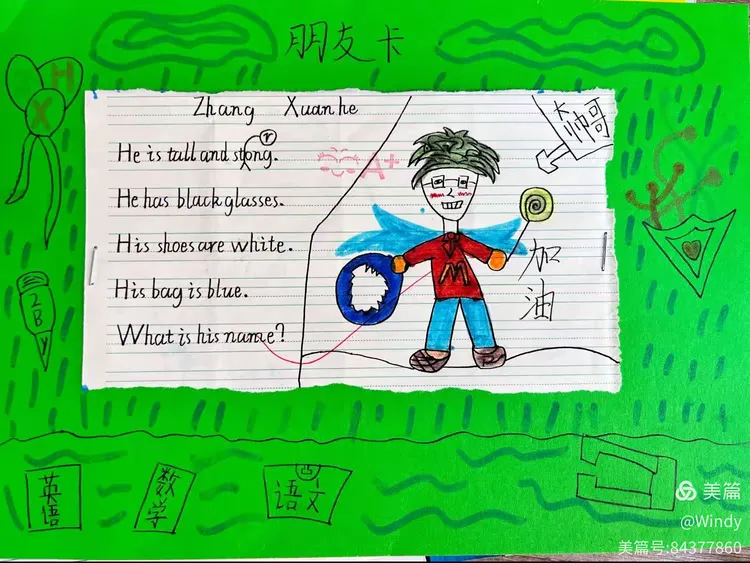 朋友卡
H
X
Zhang Xuanhe
大帅哥
He is tall and stong.
r
A+
He has black glasses.
His shoes are white.
加油
His bag is blue.
What is his name?
M
2B
英语
数学
语文
美篇
@Windy
美篇号:84377860